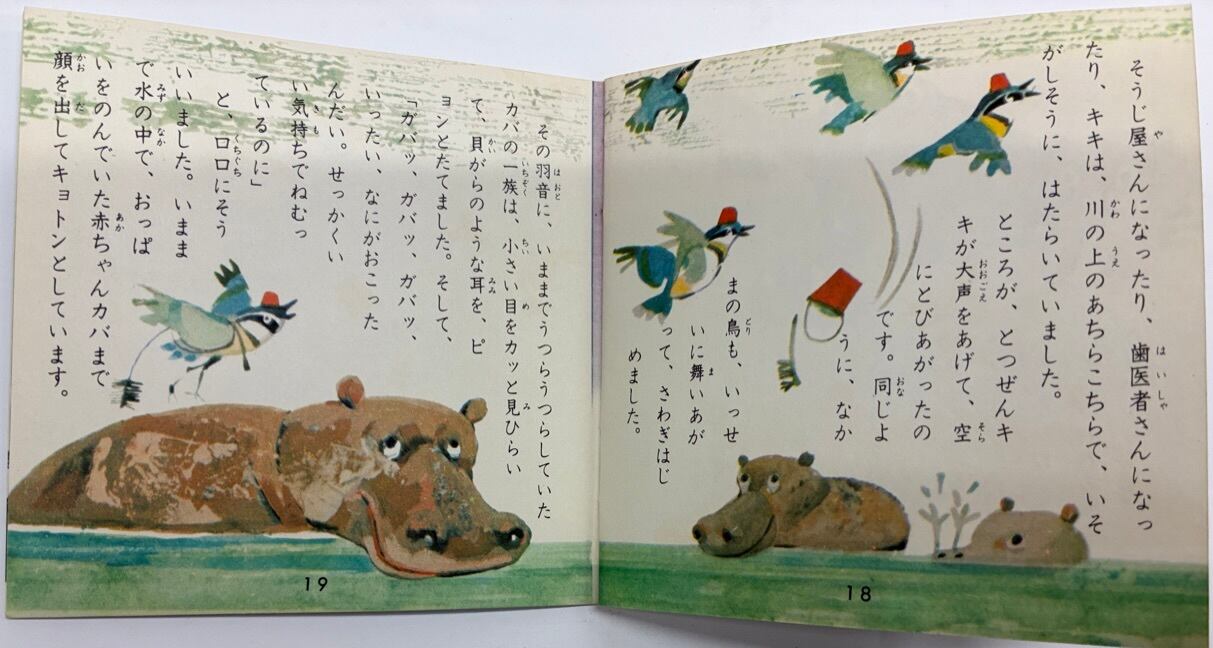 そうじ屋さんになったり、歯医者さんになっ
たり、キキは、川の上のあちらこちらで、いそ
がしそうに、はたらいていました。
ところが、とつぜんキ
キが大声をあげて、空
にとびあがったの
です。同じよ
うに、なか
まの鳥も、いっせ
いに舞いあが
って、さわぎはじ
めました。
18
その羽音に、いままでうつらうつらしていた
カバの一族は、小さい目をカッと見ひらい
て、貝がらのような耳を、ピ
ョンとたてました。そして、
「ガバッ、ガバッ、ガバッ、
いったい、なにがおこった
んだい。せっかくい
い気持ちでねむっ
ているのに」
と、口口にそう
いいました。いまま
で水の中で、おっぱ
いをのんでいた赤ちゃんカバまで
顔を出してキョトンとしています。
19